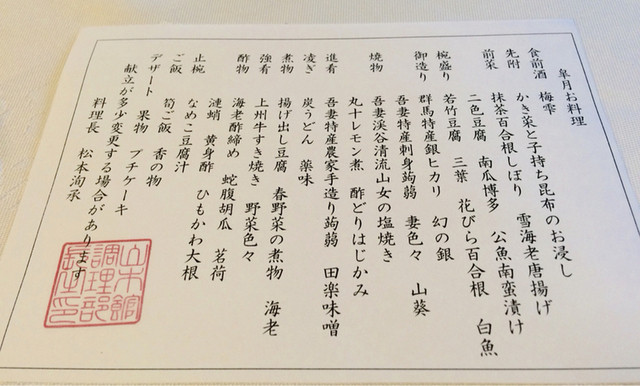 皐月お料理
食前酒 梅雫
先附 かき菜と子持ち昆布のお浸し
前菜 抹茶百合根しぼり 雪海老唐揚げ
二色豆腐 南瓜博多 公魚南蛮漬け
椀盛り 若竹豆腐 三葉 花びら百合根 白魚
御造り 群馬特産銀ヒカリ 幻の銀
吾妻特産刺身蒟蒻 妻色々 山葵
焼物 吾妻渓谷清流山女の塩焼き
丸十レモン煮 酢どりはじかみ
進肴 吾妻特産農家手造り蒟蒻 田楽味噌
凌ぎ 炭うどん 薬味
煮物 揚げ出し豆腐 春野菜の煮物 海老
強肴 上州牛すき焼き 野菜色々
酢物 海老酢締め 蛇腹胡瓜 茗荷
漣蛸 黄身酢 ひもかわ大根
止椀 なめこ豆腐汁
ご飯 筍ご飯 香の物
デザート 果物 プチケーキ
献立が多少変更する場合があります
料理長 松本洵承
山木館
調理部